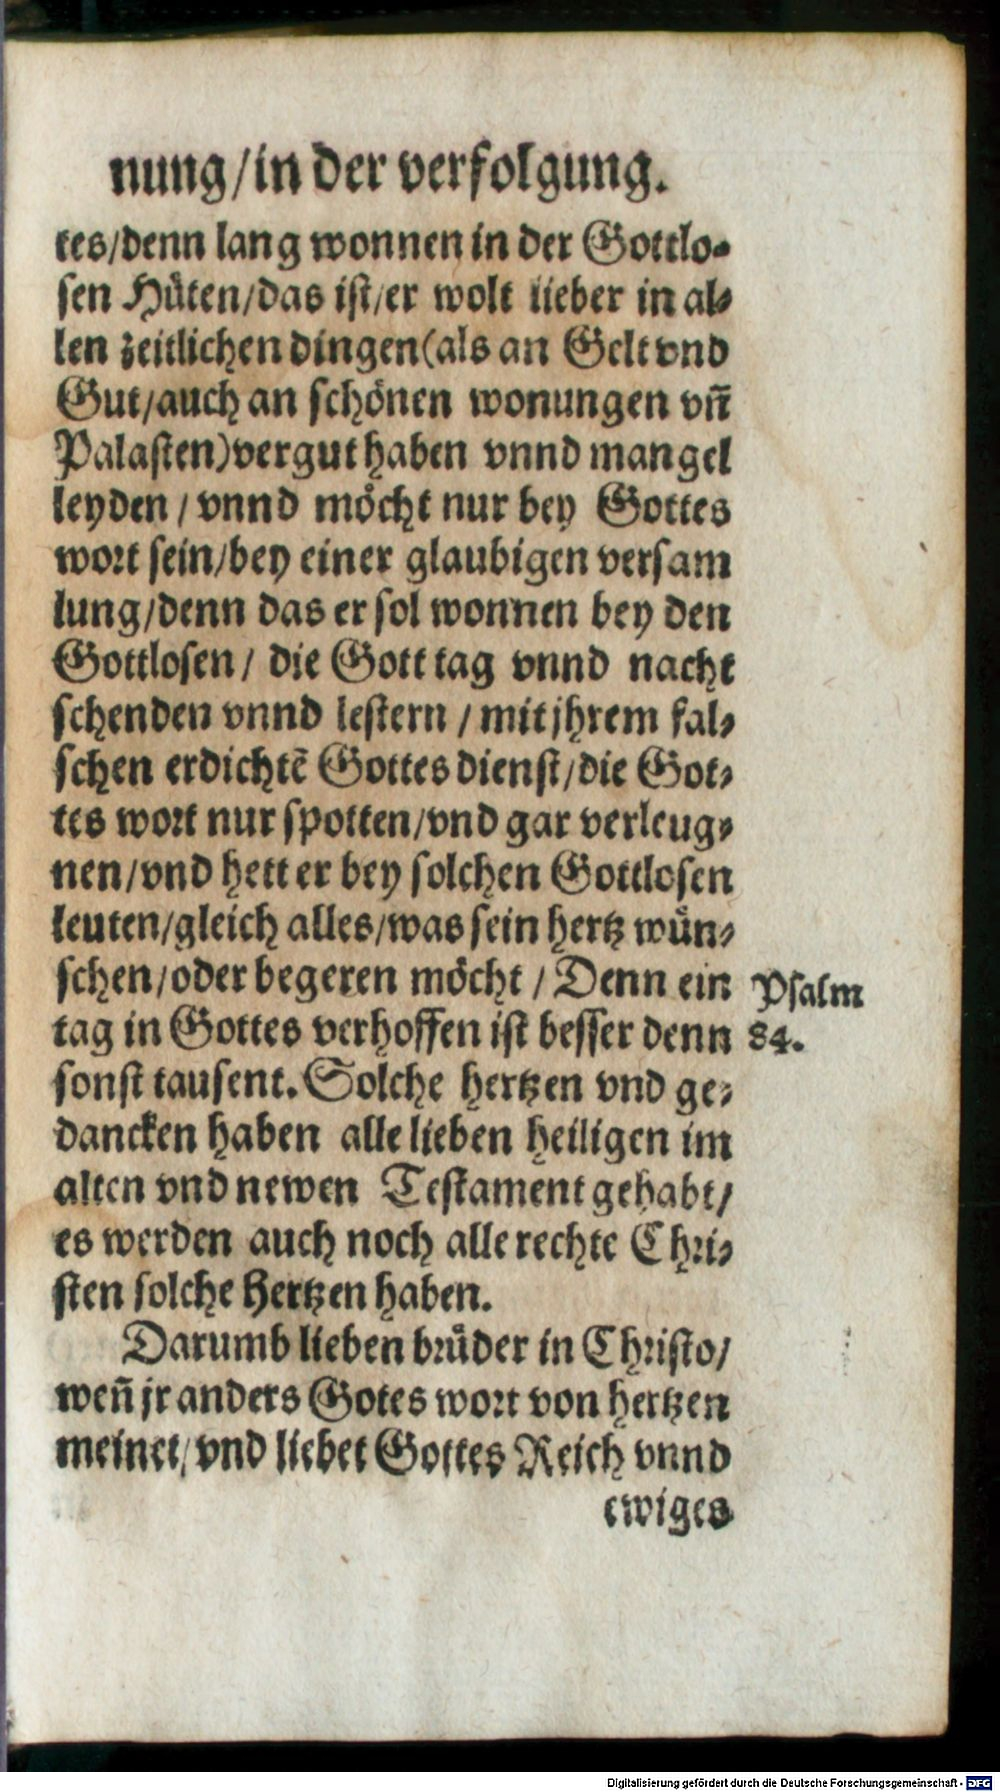 nung/in der verfolgung.
tes/denn lang wonnen in der Gottlo-
sen Hüten/das ist/er wolt lieber in al-
len zeitlichen dingen(als an Gelt vnd
Gut/auch an schönen wonungen vn̄
Palasten)vergut haben vnnd mangel
leyden / vnnd möcht nur bey Gottes
wort sein/bey einer glaubigen versam
lung/denn das er sol wonnen bey den
Gottlosen / die Gott tag vnnd nacht
schenden vnnd lestern / mit jhrem fal-
schen erdichtē Gottes dienst/die Got-
tes wort nur spotten/vnd gar verleug-
nen/vnd hett er bey solchen Gottlosen
leuten/gleich alles/was sein hertz wün-
schen/oder begeren möcht / Denn ein
Psalm
tag in Gottes verhoffen ist besser denn
84.
sonst tausent. Solche hertzen vnd ge-
dancken haben alle lieben heiligen im
alten vnd newen Testament gehabt/
es werden auch noch alle rechte Chri-
sten solche Hertzen haben.
Darumb lieben brüder in Christo/
wen̄ jr anders Gotes wort von hertzen
meinet/vnd liebet Gottes Reich vnnd
ewiges
Digitalisierung gefördert durch die Deutsche Forschungsgemeinschaft - DFG